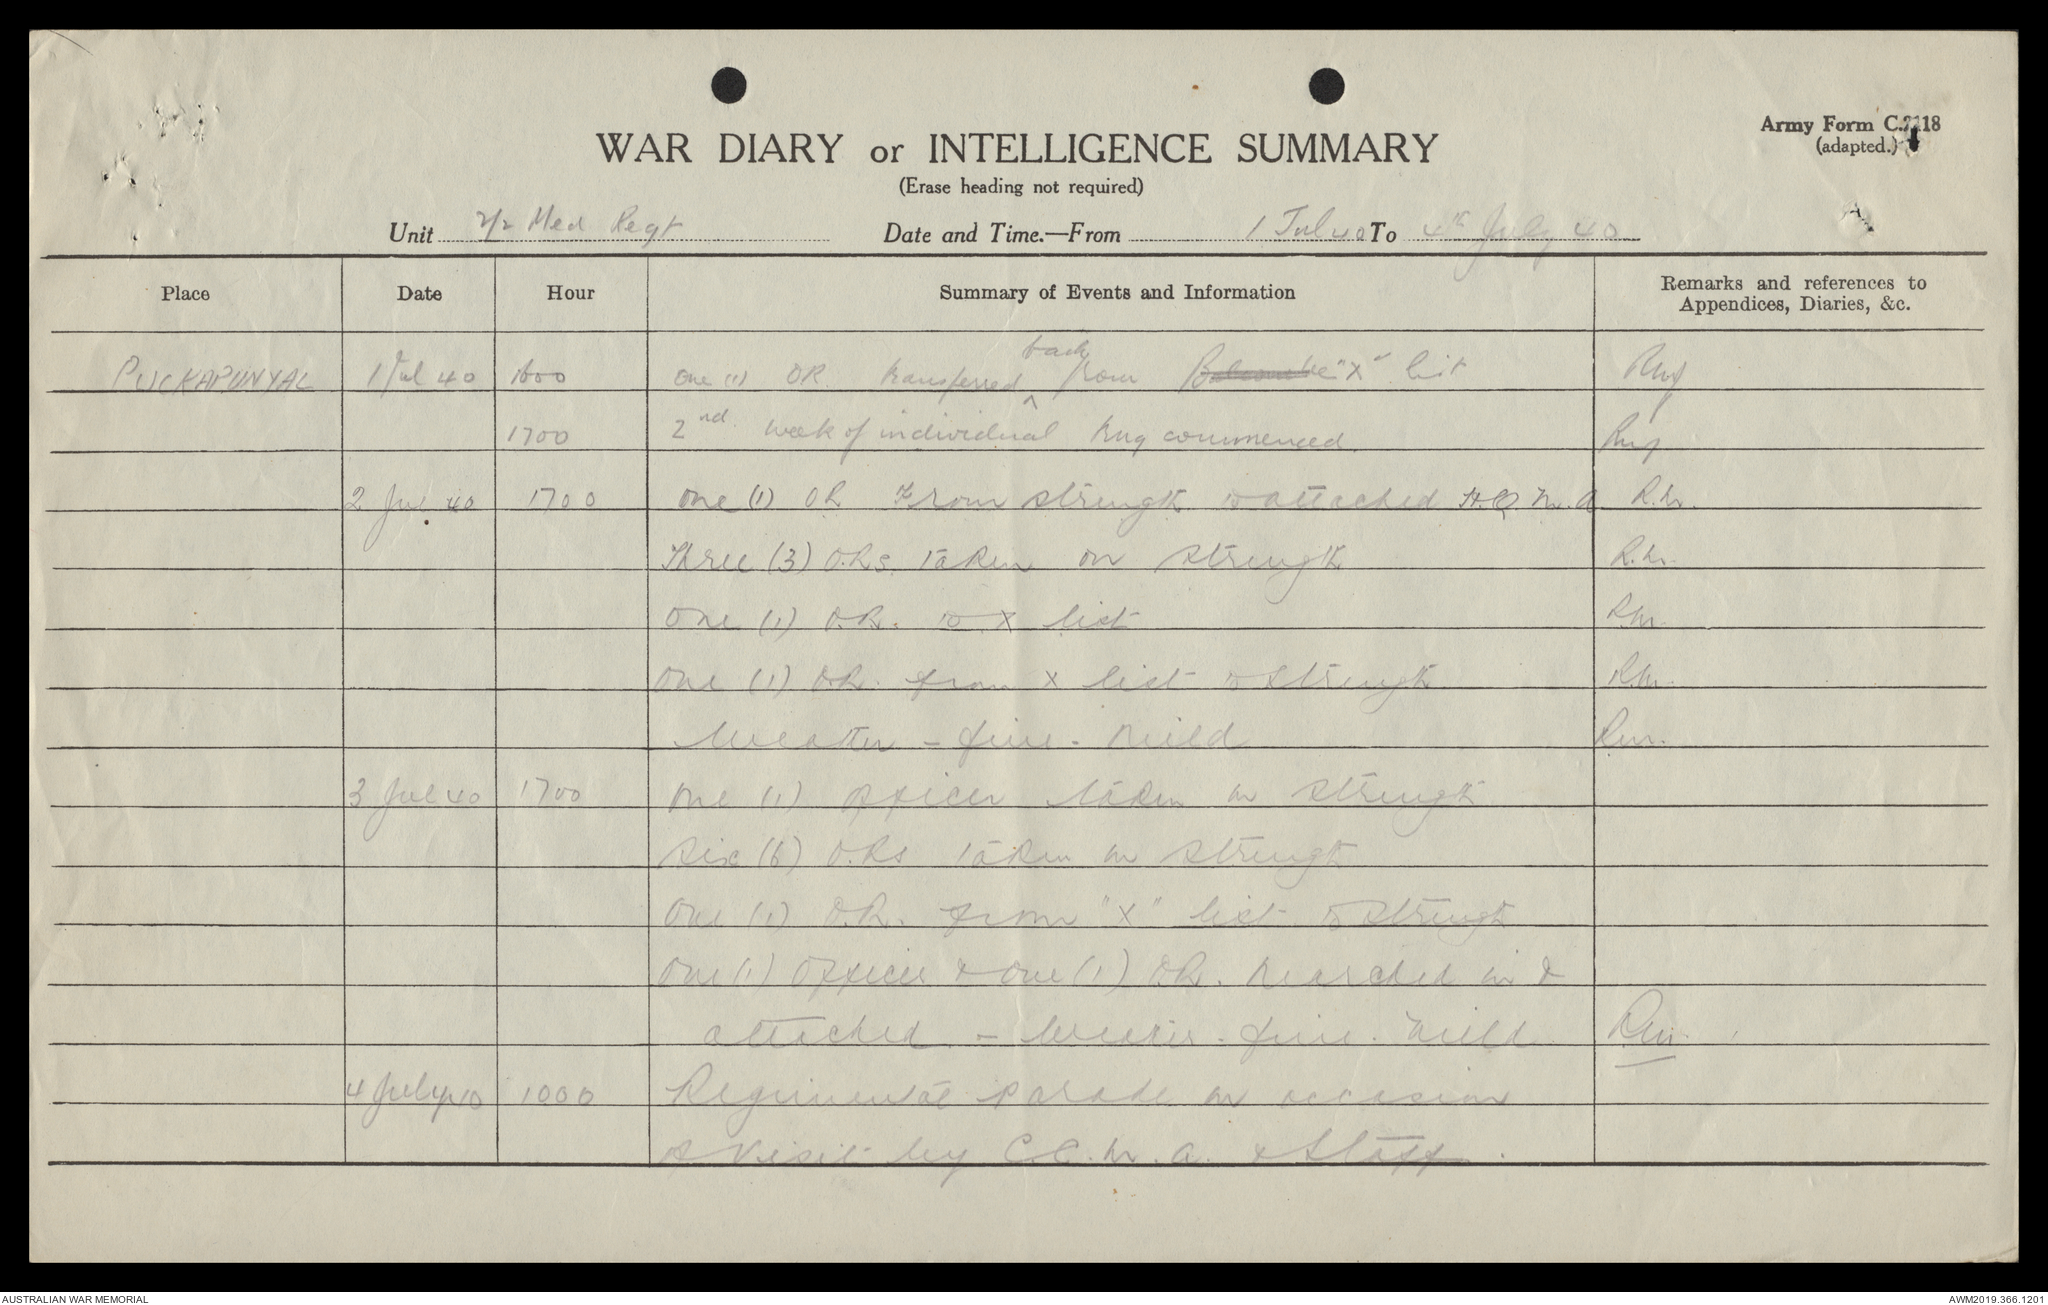 WAR DIARY or INTELLIGENCE SUMMARY
(Erase heading not required)
Army Form C.2118
(adapted.)
Unit 2/2 Med Regt Date and Time.—From 1 Jul 40 To 4th July 40
Place Date Hour Summary of Events and Information Remarks and references to Appendices, Diaries, &c.
PUCKAPUNYAL 1 Jul 40 1600 One (1) OR transferred back from "X" list
1700 2nd week of individual trng commenced
2 Jul 40 1700 One (1) OR From strength to attached H.Q. M.A. R.M.
Three (3) O.Rs. taken on strength R.M.
One (1) O.R. to X list R.M.
One (1) O.R. from X list to strength R.M.
Weather - fine - mild R.M.
3 Jul 40 1700 One (1) officer taken on strength
Six (6) O.Rs taken on strength
One (1) O.R. from "X" list to strength
One (1) Officer & one (1) O.R. marched in &
attached - Weather - fine - mild R.M.
4 July 40 1000 Regimental parade on occasion
of visit by C.C.M.A. & Staff.
AUSTRALIAN WAR MEMORIAL
AWM2019.366.1201